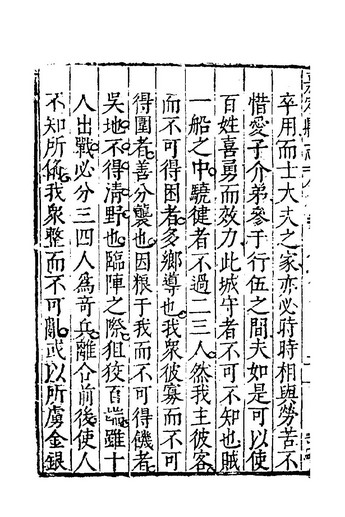 卒用而士大夫之家亦必時時相與勞苦不
惜愛子介弟參于行伍之間夫如是可以使
百姓喜勇而效力此城守者不可不知也賊
一船之中驍健者不過二三人然我主彼客
而不可得困者多鄉導也我衆彼寡而不可
得圍者善分襲也因粮于我而不可得饑者
吳地不得清野也臨陣之際狙狡百端雖十
人出戰必分三四人爲竒兵離合前後使人
不知所備我衆整而不可亂或以所虜金銀